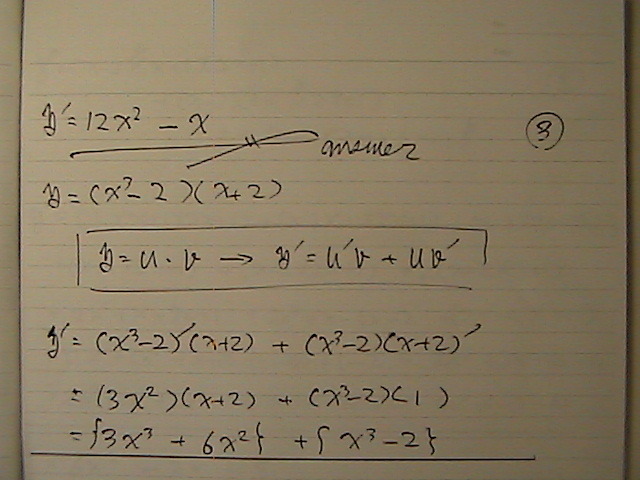 y' = 12x² - x
③
answer
y = (x³ - 2)(x + 2)
y = u · v → y' = u'v + uv'
y' = (x³ - 2)'(x + 2) + (x³ - 2)(x + 2)'
= (3x²)(x + 2) + (x³ - 2)(1)
= {3x³ + 6x²} + {x³ - 2}